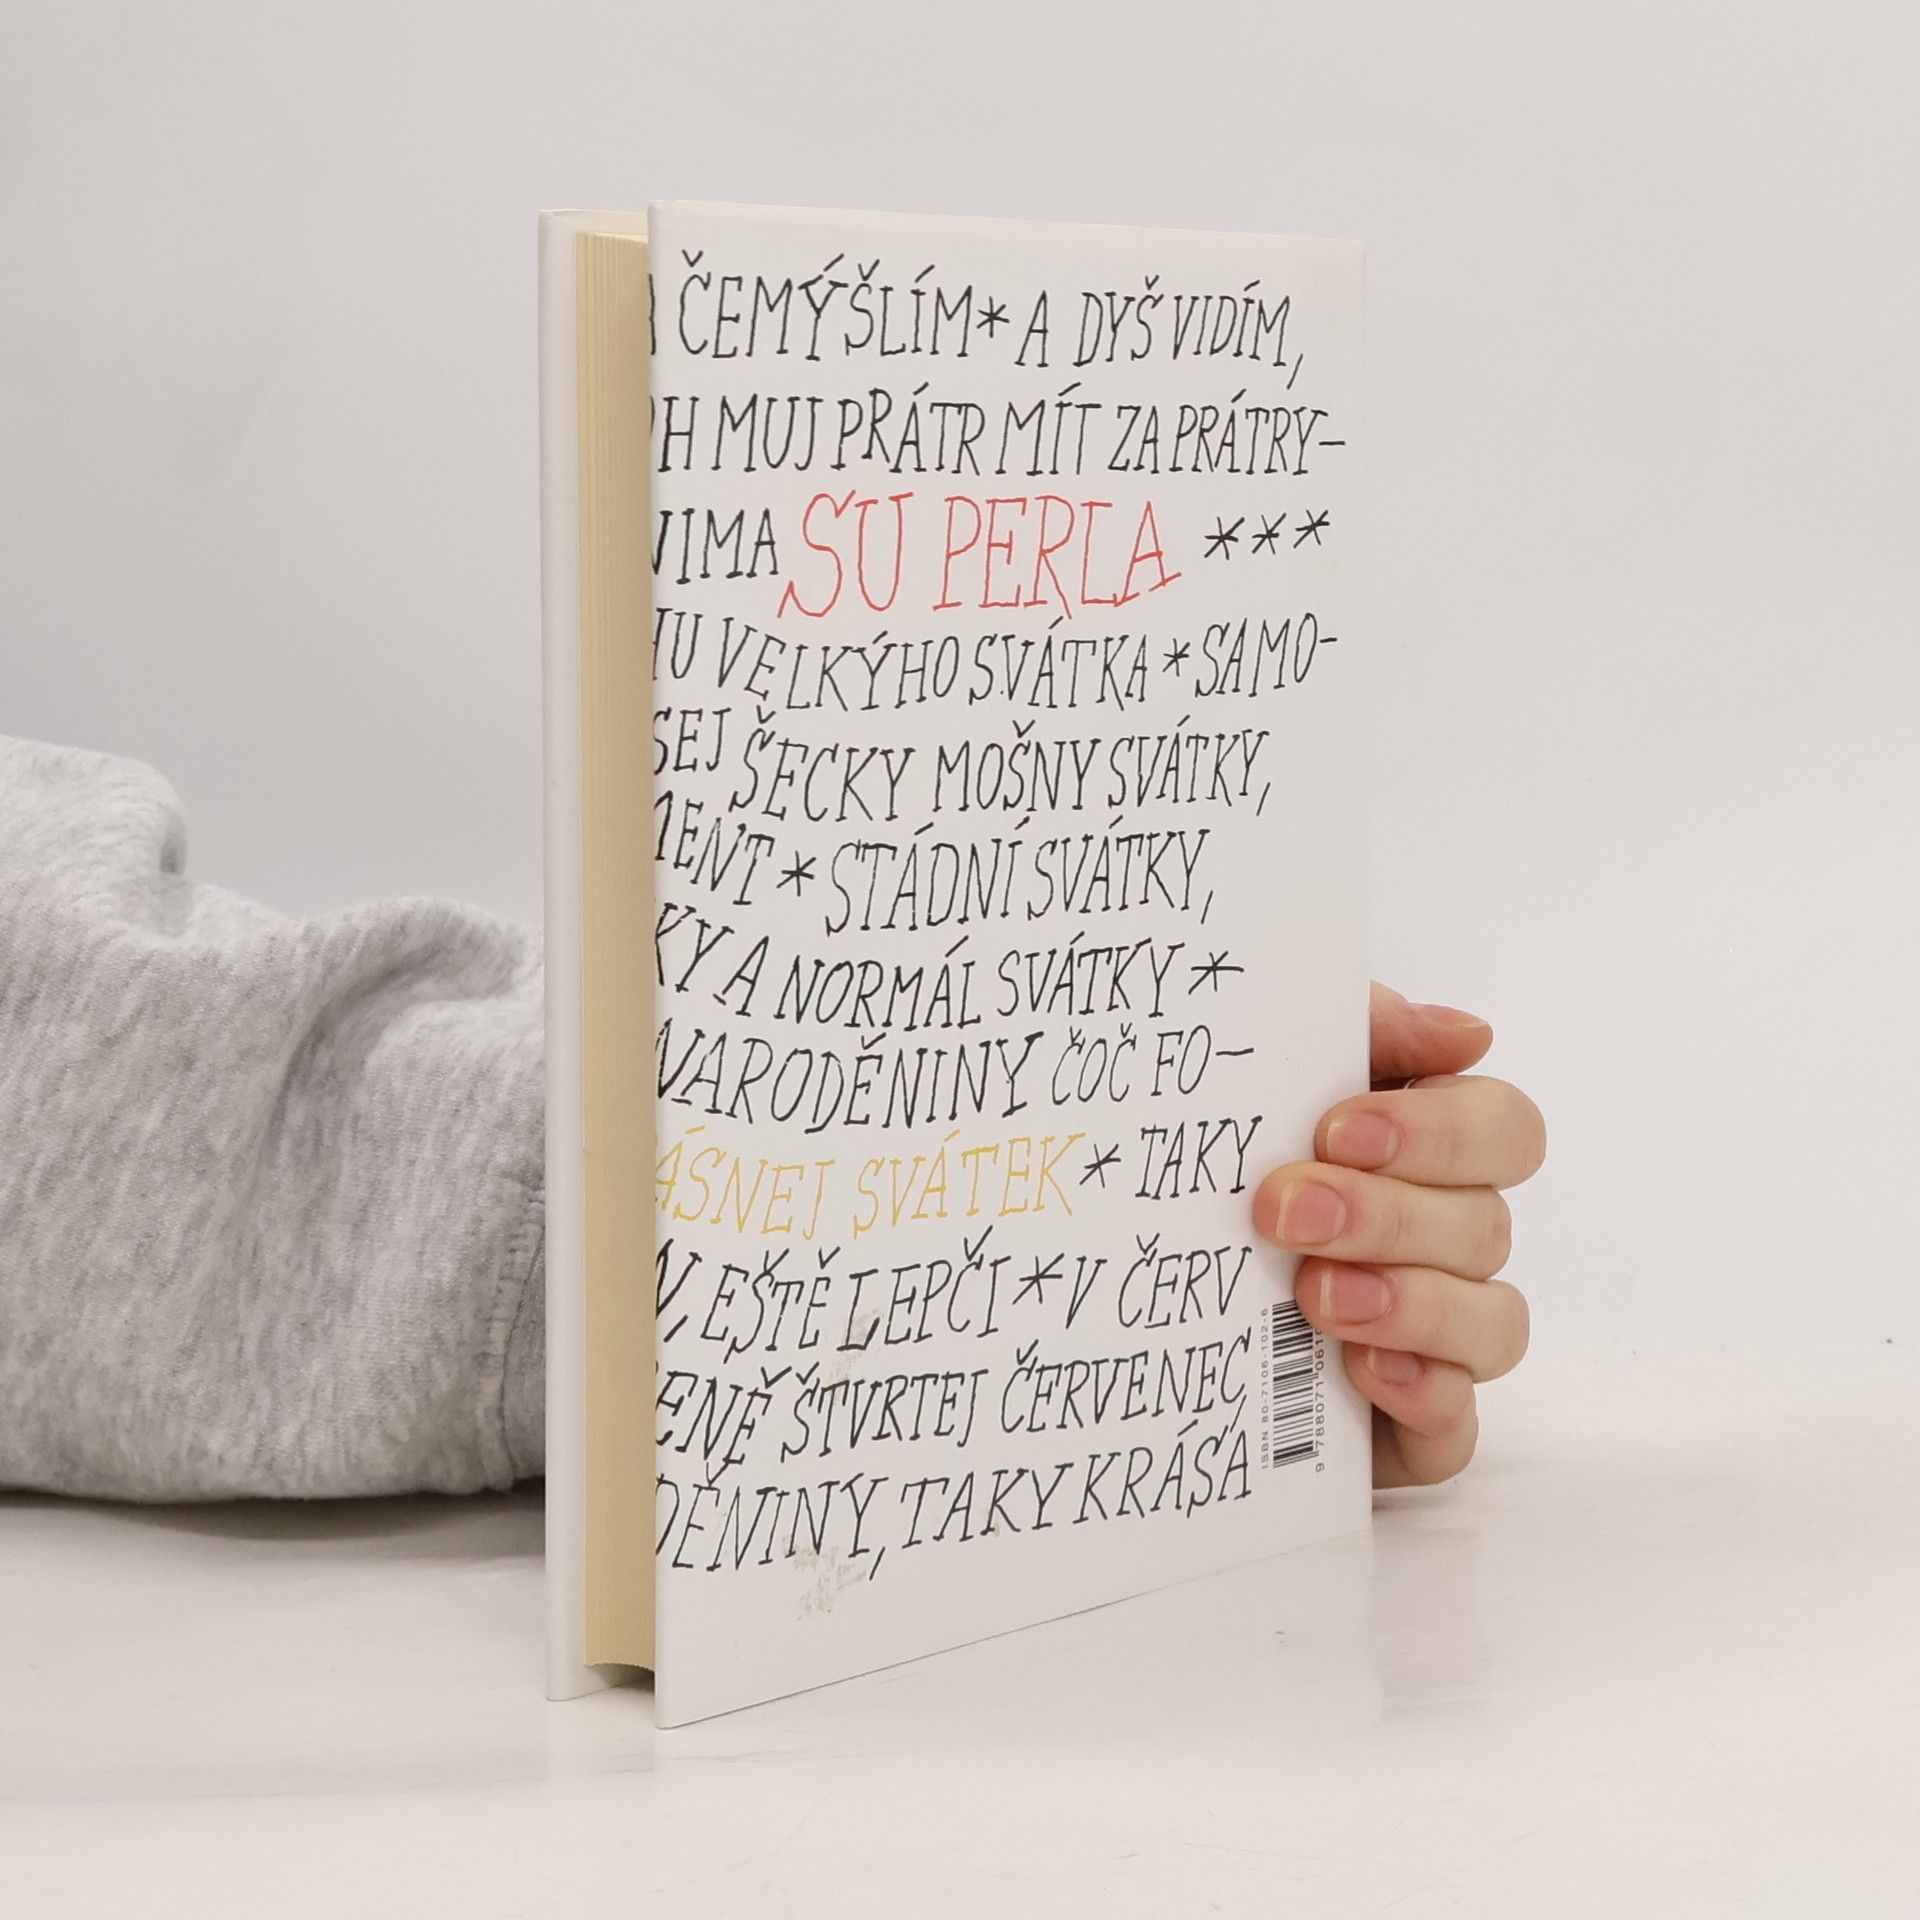 ČEMÝŠLÍM * A DYŠ VIDÍM,
H MUJ PRÁTR MÍT ZA PRÁTRY-
IMA SU PERLA ***
U VELKÝHO SVÁTKA * SAMO-
SEJ ŠECKY MOŠNY SVÁTKY,
MENT * STÁDNÍ SVÁTKY,
KY A NORMÁL SVÁTKY *
NARODĚNINY ČOČ FO-
ÁSNEJ SVÁTEK * TAKY
N, EŠTĚ LEPČI * V ČERV
ENĚ ŠTVRTEJ ČERVENEC
DĚNINY, TAKY KRÁSÁ
ISBN 80-7106-102-6
9 788071 0610